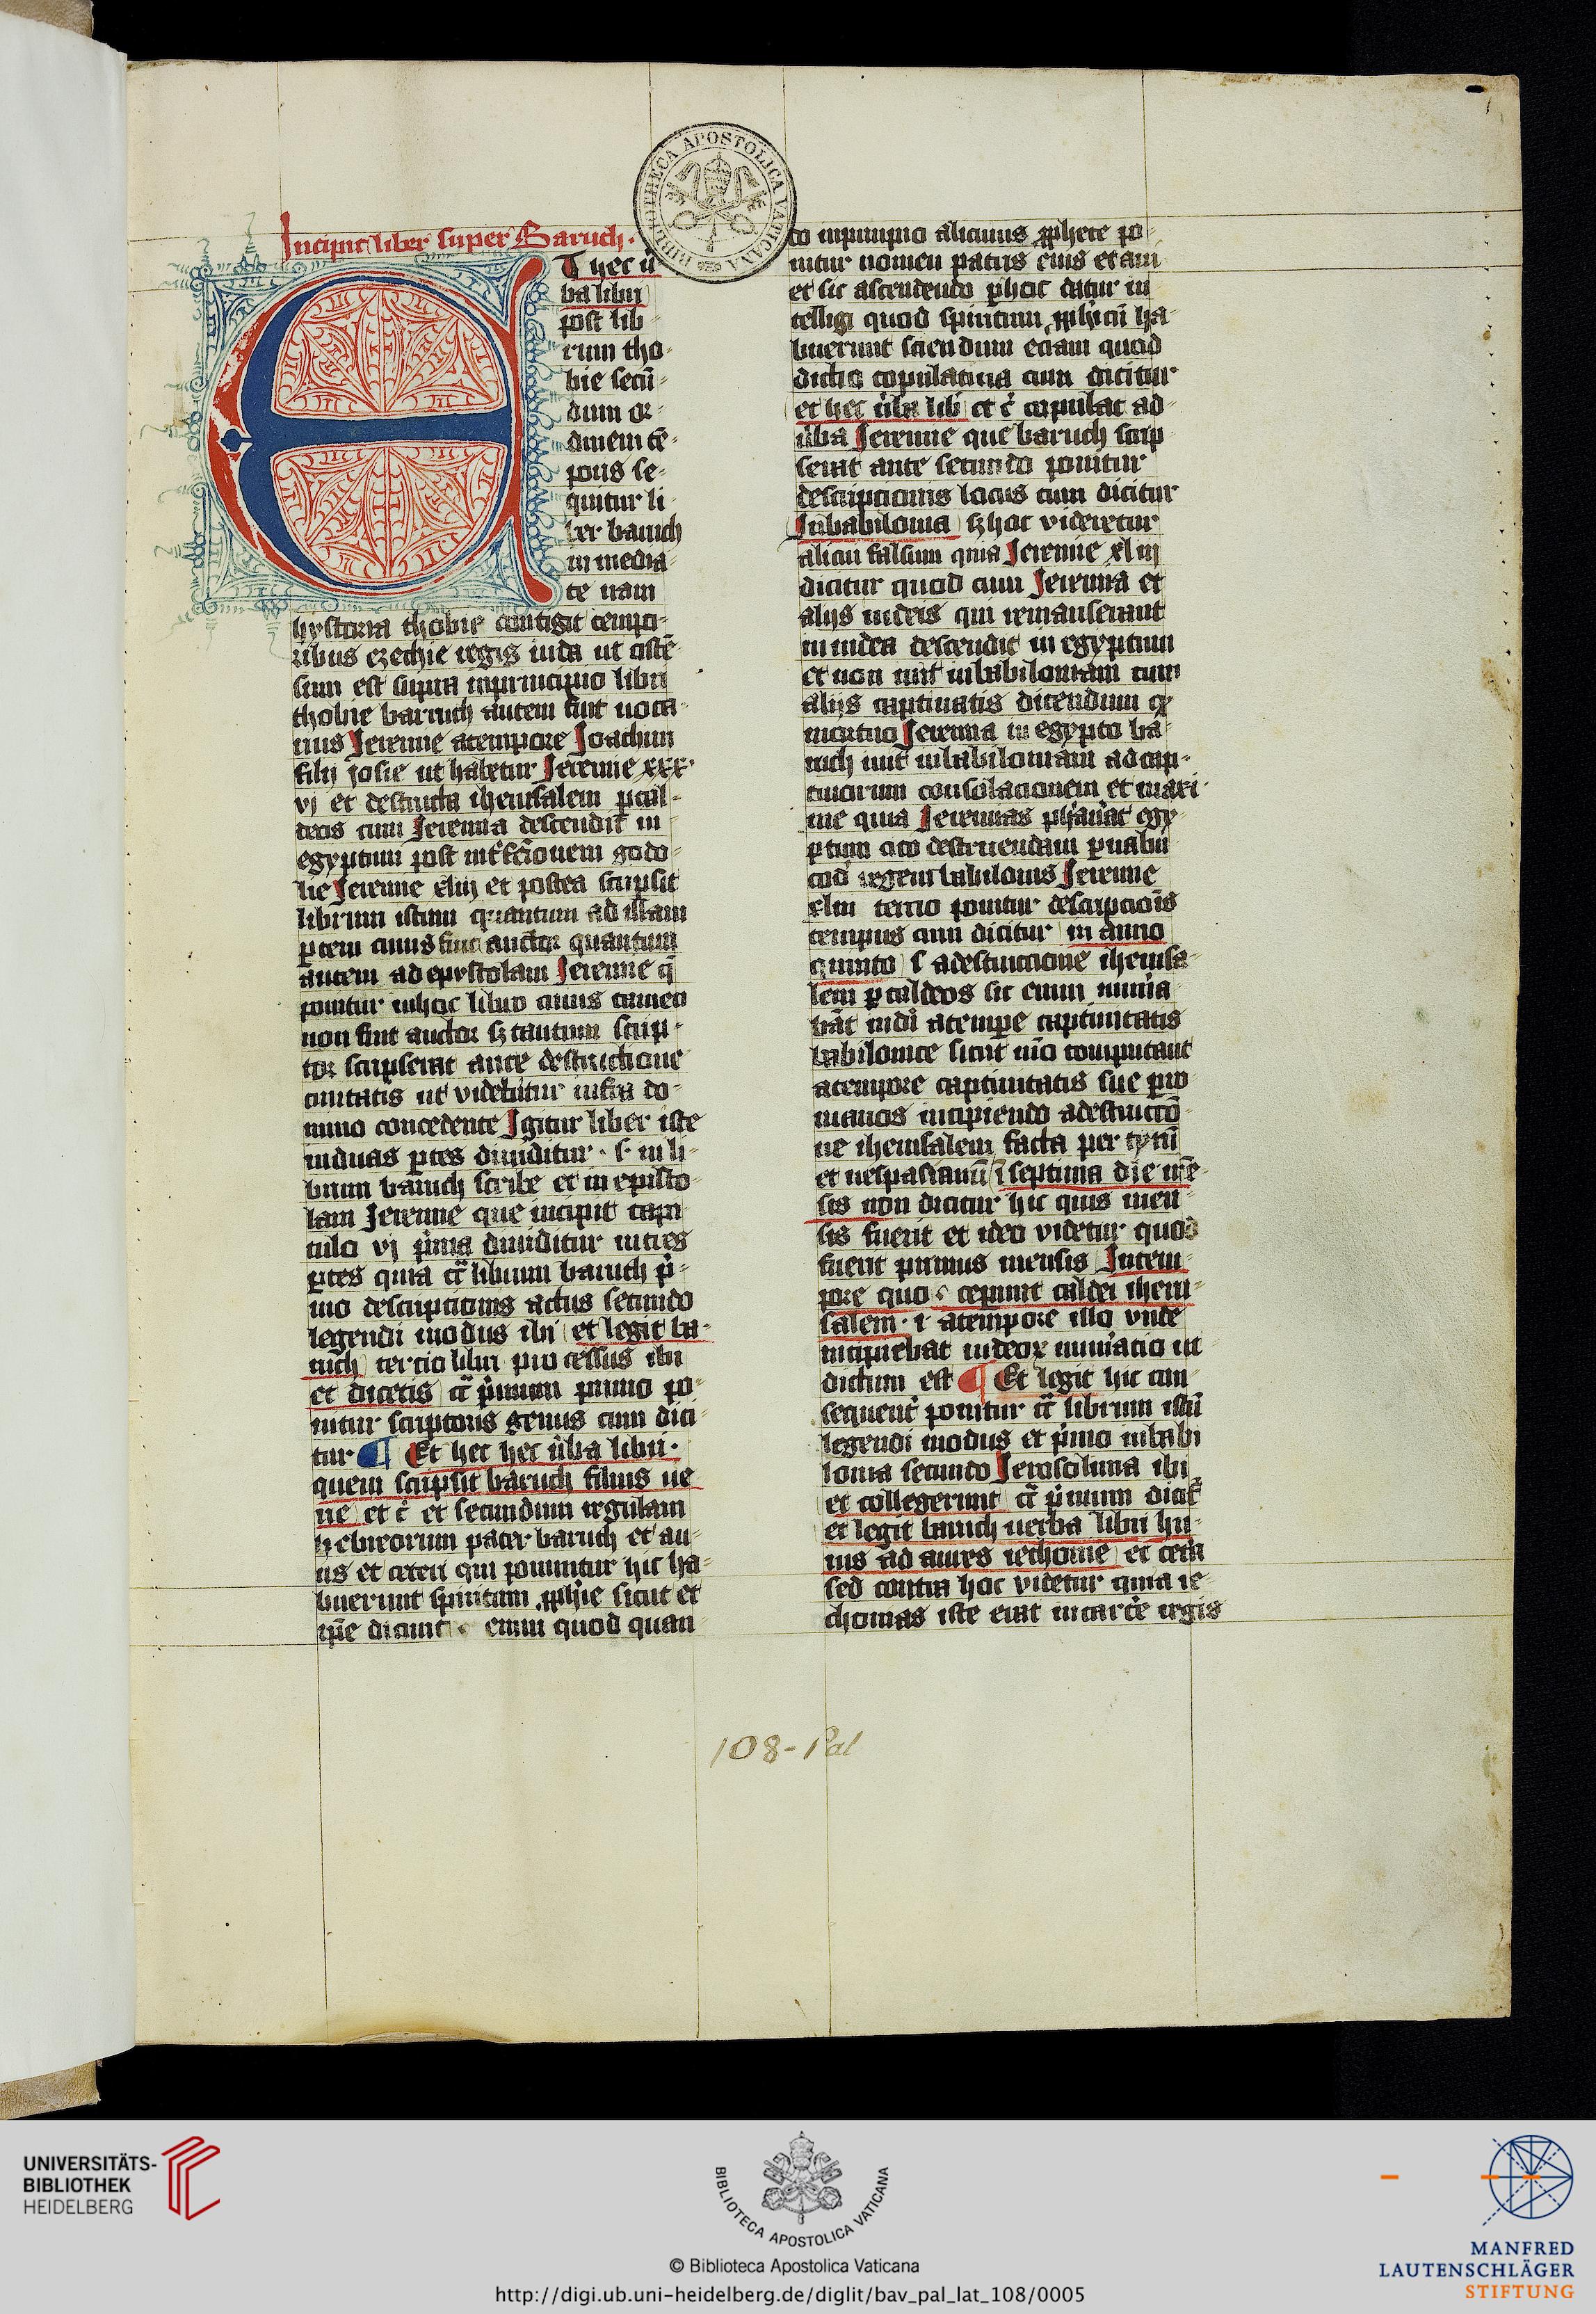 Incipit liber super Baruch.
BIBLIOTHECA APOSTOLICA VATICANA
ET hec ũ
ba libri
post lib
rum tho-
bie secū-
dum or-
dinem tē-
poris se-
quitur li
ber baruch
in media-
te nam
hystoria thobie contigit tempo-
ribus ezechie regis iuda ut ostē-
sum est supra inprincipio libri
thobie barruch autem fuit nota-
rius Jeremie atempore Joachim
filij josie ut habetur Jeremie xxx
vj et destructa iherusalem p cal-
deos cum Jeremia descendit in
egyptum post int'fectionem godo-
lie Jeremie xliij et postea scripsit
librum istum quantum ad illam
ptem cuius fuit auctor quantum
autem ad epystolam Jeremie q̄
ponitur inhoc libro cuius tamen
non fuit auctor sz tantum scrip-
tor scripserat ante destructione
ciuitatis ut videbitur infra do-
mino concedente Igitur liber iste
induas ptes diuiditur . s. in li-
brum baruch scribe et in episto-
lam Jeremie que incipit capi-
tulo vj p'ma diuiditur intres
ptes quia c̄ librum baruch p'-
mo descriptionis actus secundo
legendi modus ibi et legit ba-
ruch tercio libri processus ibi
et dicetis c̄ p'mum primo po-
nitur scriptoris genus cum dici-
tur ¶ Et hec hec ũba libri.
quem scripsit baruch filius ne
rie et c̄ et secundum regulam
hebreorum pater baruch et au-
us et ceteri qui ponuntur hic ha-
buerunt spiritum pphie sicut et
ip̄e dicunt enim quod quan-
do inprincipio alicuius pphete po-
nitur nomen patris eius et aui
et sic ascendendo p hoc datur in
telligi quod spiritum pphicū ha-
buerunt sciendum eciam quod
dictio copulatiua cum dicitur
et hec ũba lib' et c̄ copulat ad
ũba Jeremie que baruch scrip
serat ante secundo ponitur
descriptionis locus cum dicitur
Inbabilonia sz hoc videretur
alicui falsum quia Jeremie xliij
dicitur quod cum Jeremia et
alijs iudeis qui remanserant
in iudea descendit in egyptum
et non iuit inbabiloniam cum
alijs captiuatis dicendum q
mortuo Jeremia in egypto ba-
ruch iuit inbabiloniam ad cap-
tiuorum consolacionem et maxi-
me quia Jeremias ph'auat egy-
ptum cito destruendam p nabu
cod' regem babilonis Jeremie
xliij tercio ponitur descripciōis
tempus cum dicitur in anno
quinto s adestructione iherusa-
lem p caldeos sic enim numa
bāt iudei atempe captiuitatis
babilonice sicut mō computant
atempore captiuitatis sue p ro-
manos incipiendo adestructō-
ne iherusalem facta per tytū
et uespasianū ī septima die mē-
sis non dicitur hic quis men
sis fuerit et ideo videtur quod
fuerit primus mensis Intem-
pore quo ceperunt caldei iheru-
salem . i atempore illo vnde
incipiebat iudeorz numatio ut
dictum est ¶ Et legit hic con-
sequent' ponitur c̄ librum istū
legendi modus et p'mo inbabi
lonia secundo Jerosolima ibi
et collegerunt c̄ p'mum dicit'
et legit baruch uerba libri hu-
ius ad aures iechonie et cetera
sed contra hoc videtur quia ie-
chonias iste erat incarcē regis
108-Pal
UNIVERSITÄTS-
BIBLIOTHEK
HEIDELBERG
BIBLIOTECA APOSTOLICA VATICANA
© Biblioteca Apostolica Vaticana
http://digi.ub.uni-heidelberg.de/diglit/bav_pal_lat_108/0005
MANFRED
LAUTENSCHLÄGER
STIFTUNG